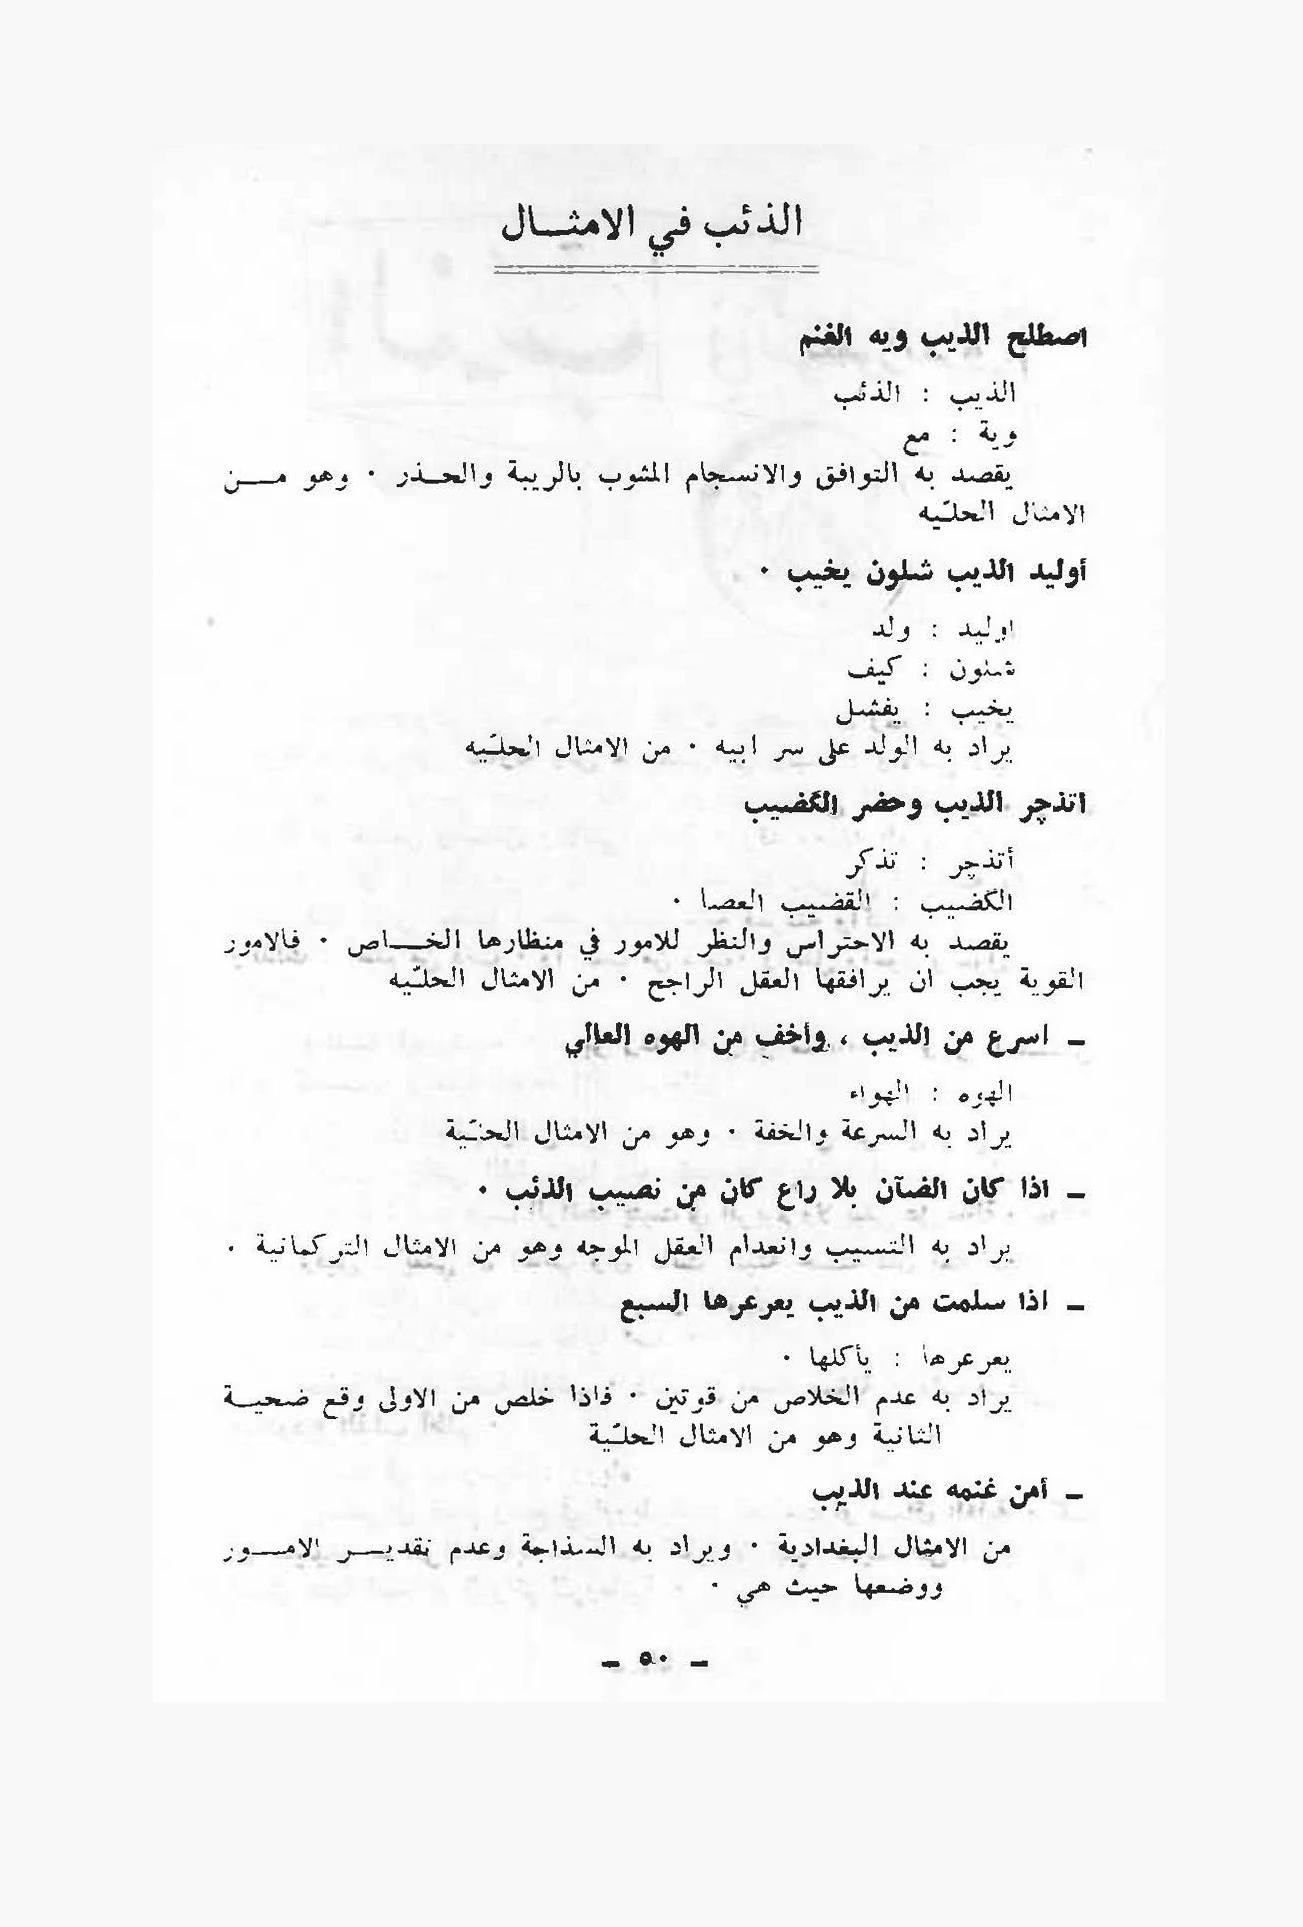 الذئب في الامثـــال
اصطلح الذيب ويه الغنم
الذيب : الذئب
وية : مع
يقصد به التوافق والانسجام المثوب بالريبة والحـــذر ٠ وهو مـــن
الامثال الحلـّيه
أوليد الذيب شلون يخيب ٠
اوليد : ولد
شلون : كيف
يخيب : يفشل
يراد به الولد على سر ابيه ٠ من الامثال الحلـّيه
اتذچر الذيب وحضر الگضيب
أتذچر : تذكر
الگضيب : القضيب العصا ٠
يقصد به الاحتراس والنظر للامور في منظارها الخـــاص ٠ فالامور
القوية يجب ان يرافقها العقل الراجح ٠ من الامثال الحلـّيه
ـ اسرع من الذيب ، وأخف من الهوه العالي
الهوه : الهواء
يراد به السرعة والخفة ٠ وهو من الامثال الحلـّية
ـ اذا كان الضآن بلا راع كان من نصيب الذئب ٠
يراد به التسيب وانعدام العقل الموجه وهو من الامثال التركمانية ٠
ـ اذا سلمت من الذيب يعرعرها السبع
يعرعرها : يأكلها ٠
يراد به عدم الخلاص من قوتين ٠ فاذا خلص من الاولى وقع ضحيـــة
الثانية وهو من الامثال الحلـّية
ـ أمن غنمه عند الذيب
من الامثال البغدادية ٠ ويراد به السذاجة وعدم تقديـــر الامـــور
ووضعها حيث هي ٠
ـ ٥٠ ـ